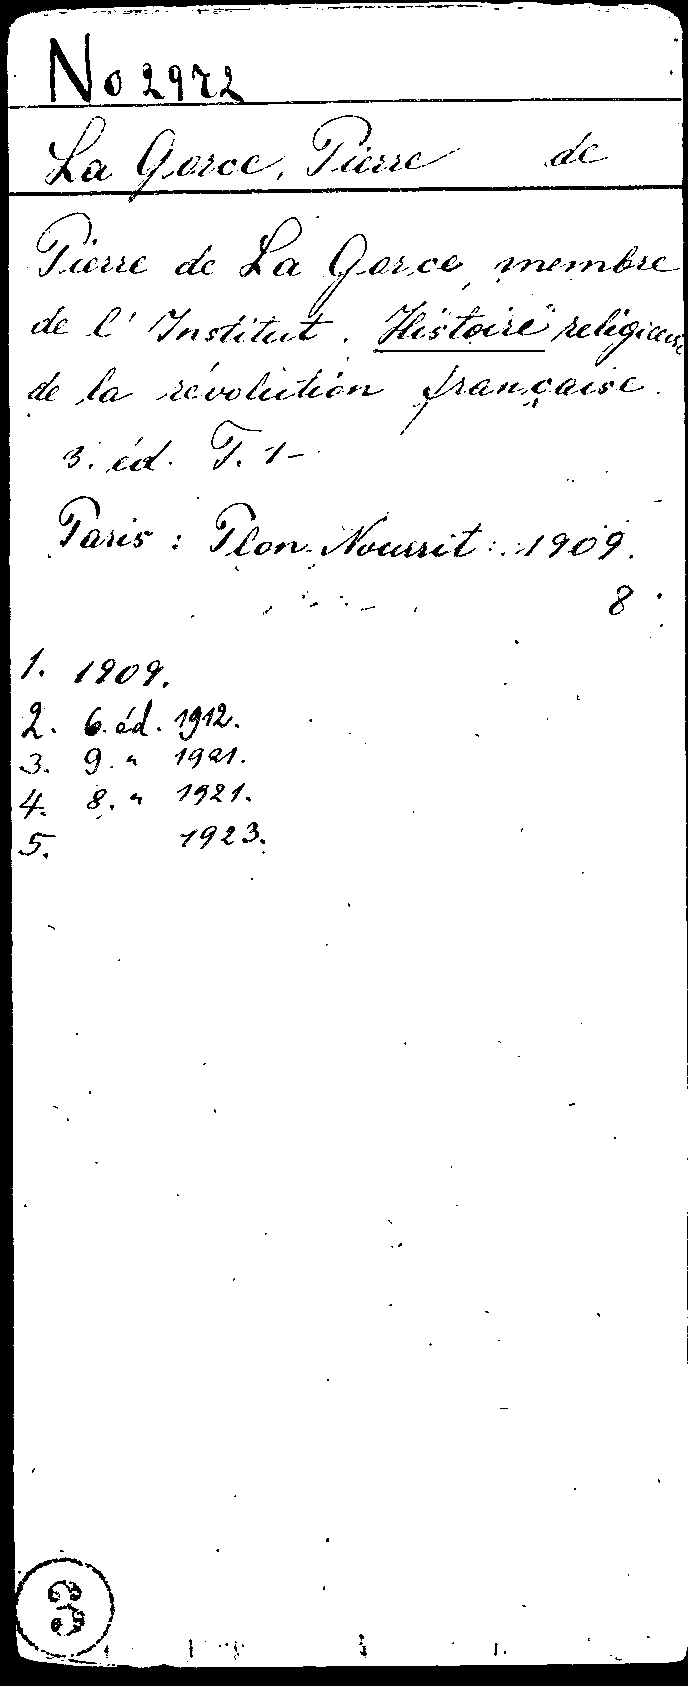 No 2972
La Gorce, Pierre de
Pierre de La Gorce, membre
de l' Institut. Histoire religieuse
de la révolution française.
3. éd. T. 1-
Paris: Plon-Nourrit: 1909.
8°
1. 1909.
2. 6. éd. 1912.
3. 9. " 1921.
4. 8. " 1921.
5. 1923.
3